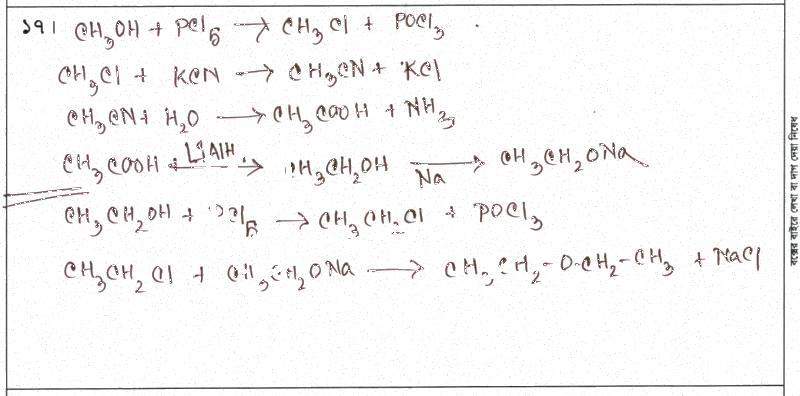 ১৭। CH₃OH + PCl₅ → CH₃Cl + POCl₃
CH₃Cl + KCN → CH₃CN + KCl
CH₃CN + H₂O → CH₃COOH + NH₃
CH₃COOH + LiAlH₄ → CH₃CH₂OH Na→ CH₃CH₂ONa
CH₃CH₂OH + PCl₅ → CH₃CH₂Cl + POCl₃
CH₃CH₂Cl + CH₃CH₂ONa → CH₃CH₂-O-CH₂-CH₃ + NaCl
বক্সের বাইরে লেখা বা দাগ দেয়া নিষেধ